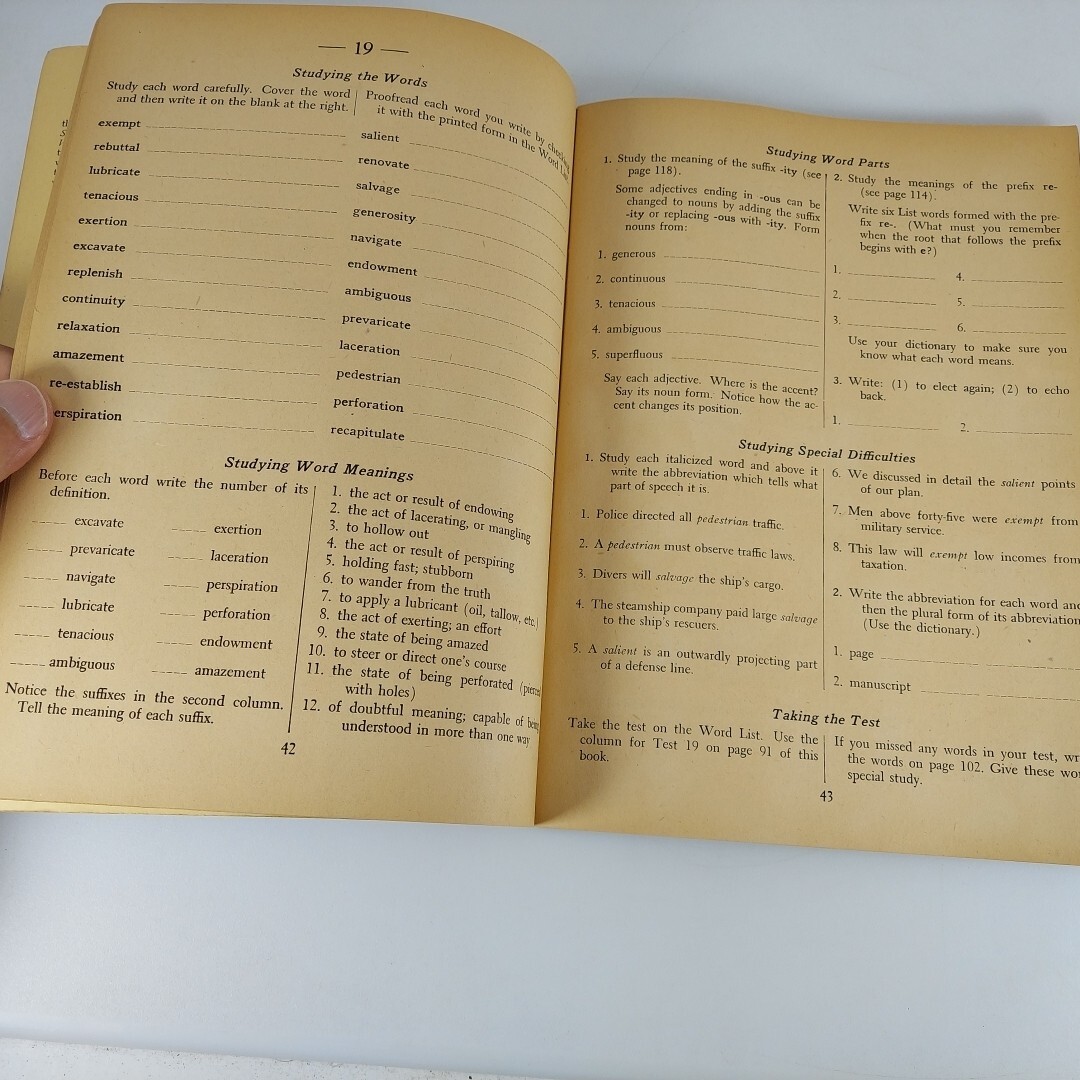 — 19 —
Studying the Words
Study each word carefully. Cover the word
and then write it on the blank at the right.
Proofread each word you write by
it with the printed form in the Word
exempt
rebuttal
lubricate
tenacious
exertion
excavate
replenish
continuity
relaxation
amazement
re-establish
erspiration
salient
renovate
salvage
generosity
navigate
endowment
ambiguous
prevaricate
laceration
pedestrian
perforation
recapitulate
Studying Word Meanings
Before each word write the number of its
definition.
excavate
prevaricate
navigate
lubricate
tenacious
ambiguous
exertion
laceration
perspiration
perforation
endowment
amazement
Notice the suffixes in the second column.
Tell the meaning of each suffix.
1. the act or result of endowing
2. the act of lacerating, or mangling
3. to hollow out
4. the act or result of perspiring
5. holding fast; stubborn
6. to wander from the truth
7. to apply a lubricant (oil, tallow, etc.)
8. the act of exerting; an effort
9. the state of being amazed
10. to steer or direct one's course
11. the state of being perforated (pierced
with holes)
12. of doubtful meaning; capable of being
understood in more than one way
42
Studying Word Parts
1. Study the meaning of the suffix -ity (see
page 118).
Some adjectives ending in -ous can be
changed to nouns by adding the suffix
-ity or replacing -ous with -ity. Form
nouns from:
1. generous
2. continuous
3. tenacious
4. ambiguous
5. superfluous
Say each adjective. Where is the accent?
Say its noun form. Notice how the ac-
cent changes its position.
2. Study the meanings of the prefix re-
(see page 114).
Write six List words formed with the pre-
fix re-. (What must you remember
when the root that follows the prefix
begins with e?)
1.
2.
3.
4.
5.
6.
Use your dictionary to make sure you
know what each word means.
3. Write: (1) to elect again; (2) to echo
back.
1.
2.
Studying Special Difficulties
1. Study each italicized word and above it
write the abbreviation which tells what
part of speech it is.
1. Police directed all pedestrian traffic.
2. A pedestrian must observe traffic laws.
3. Divers will salvage the ship's cargo.
4. The steamship company paid large salvage
to the ship's rescuers.
5. A salient is an outwardly projecting part
of a defense line.
6. We discussed in detail the salient points
of our plan.
7. Men above forty-five were exempt from
military service.
8. This law will exempt low incomes from
taxation.
2. Write the abbreviation for each word and
then the plural form of its abbreviation
(Use the dictionary.)
1. page
2. manuscript
Taking the Test
Take the test on the Word List. Use the
column for Test 19 on page 91 of this
book.
If you missed any words in your test, wri
the words on page 102. Give these wor
special study.
43